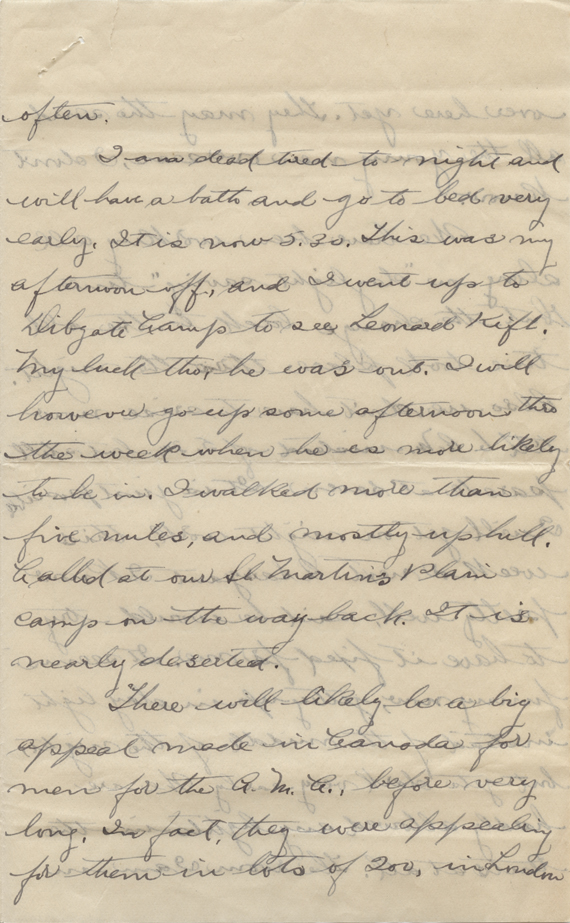 often.
I am dead tired to-night and
will have a bath and go to bed very
early. It is now 5.30. This was my
afternoon "off", and I went up to
Dibgate Camp to see Leonard Kift.
My luck tho, he was out. I will
however go up some afternoon thro
the week when he is more likely
to be in. I walked more than
five miles, and mostly up hill.
Called at our St Martin's Plain
camp on the way back. It is
nearly deserted.
There will likely be a big
appeal made in Canada for
men for the A.M.C., before very
long. In fact, they were appealing
for them in lots of 200, in London